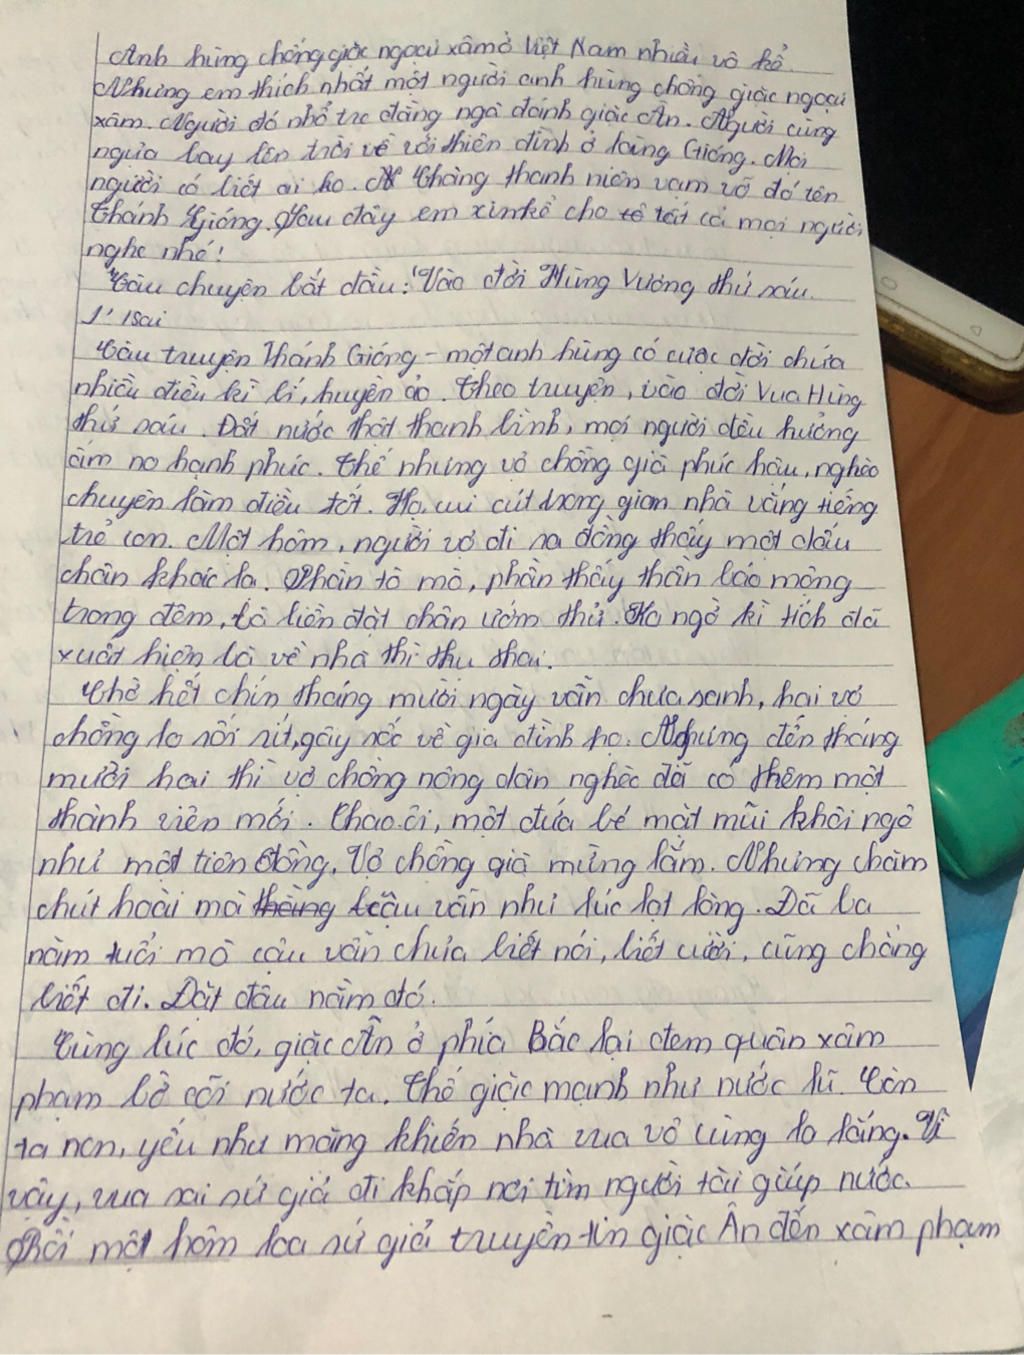 Anh hùng chống giặc ngoại xâm ở Việt Nam nhiều vô kể.
Nhưng em thích nhất một người anh hùng chống giặc ngoại
xâm. Người đó nhổ tre đằng ngà đánh giặc Ân. Người cùng
ngựa bay lên trời về với thiên đình ở làng Gióng. Mọi
người có biết ai ko. Chàng thanh niên vạm vỡ đó tên
Thánh Gióng. Sau đây em xin kể cho tất cả mọi người
nghe nhé!
Câu chuyện bắt đầu: "Vào đời Hùng Vương thứ sáu.
Câu truyện Thánh Gióng - một anh hùng có cuộc đời chứa
nhiều điều kì bí, huyền ảo. Theo truyện, vào đời Vua Hùng
thứ sáu. Đất nước thật thanh bình, mọi người đều hưởng
ấm no hạnh phúc. Thế nhưng vợ chồng già phúc hậu, nghèo
chuyên làm điều tốt. Họ cui cút trong gian nhà vắng tiếng
trẻ con. Một hôm, người vợ đi ra đồng thấy một dấu
chân khác lạ. Phần tò mò, phần thấy thần báo mộng
trong đêm, bà liền đặt chân ướm thử. Ko ngờ kì tích đã
xuất hiện bà về nhà thì thụ thai.
Chờ hết chín tháng mười ngày vẫn chưa sanh, hai vợ
chồng lo sốt sít, gây sốc về gia đình họ. Nhưng đến tháng
mười hai thì vợ chồng nông dân nghèo đã có thêm một
thành viên mới. Chao ôi, một đứa bé mặt mũi khôi ngô
như một tiên đồng. Vợ chồng già mừng lắm. Nhưng chăm
chút hoài mà cậu vẫn như lúc lọt lòng. Đã ba
năm tuổi mà cậu vẫn chưa biết nói, biết cười, cũng chẳng
biết đi. Đặt đâu nằm đó.
Cùng lúc đó, giặc Ân ở phía Bắc lại đem quân xâm
phạm bờ cõi nước ta. Thế giặc mạnh như nước lũ. Còn
ta non, yếu như măng khiến nhà vua vô cùng lo lắng. Vì
vậy, vua sai sứ giả đi khắp nơi tìm người tài giúp nước.
Rồi một hôm loa sứ giả truyền tin giặc Ân đến xâm phạm